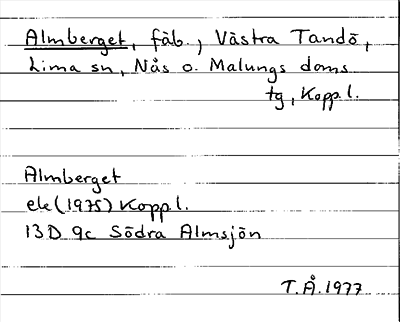 Almberget, fäb., Västra Tandö,
Lima sn, Nås o. Malungs doms
tg, Kopp.l.
Almberget
ek (1975) Kopp.l.
13D 9c Södra Almsjön
T.Å. 1977